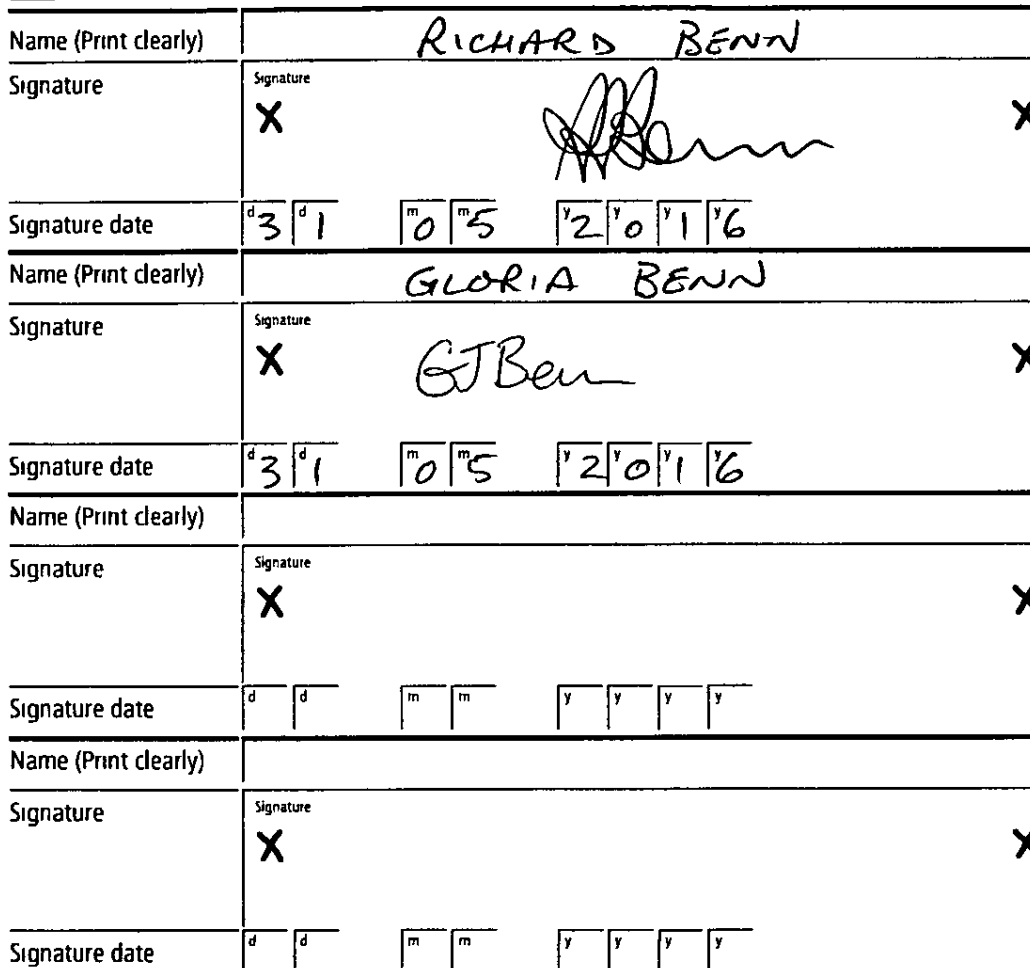 Name (Print clearly) RICHARD BENN
Signature Signature
X X
Signature date d3 d1 m0 m5 y2 y0 y1 y6
Name (Print clearly) GLORIA BENN
Signature Signature
X GJBenn X
Signature date d3 d1 m0 m5 y2 y0 y1 y6
Name (Print clearly)
Signature Signature
X X
Signature date d d m m y y y y
Name (Print clearly)
Signature Signature
X X
Signature date d d m m y y y y